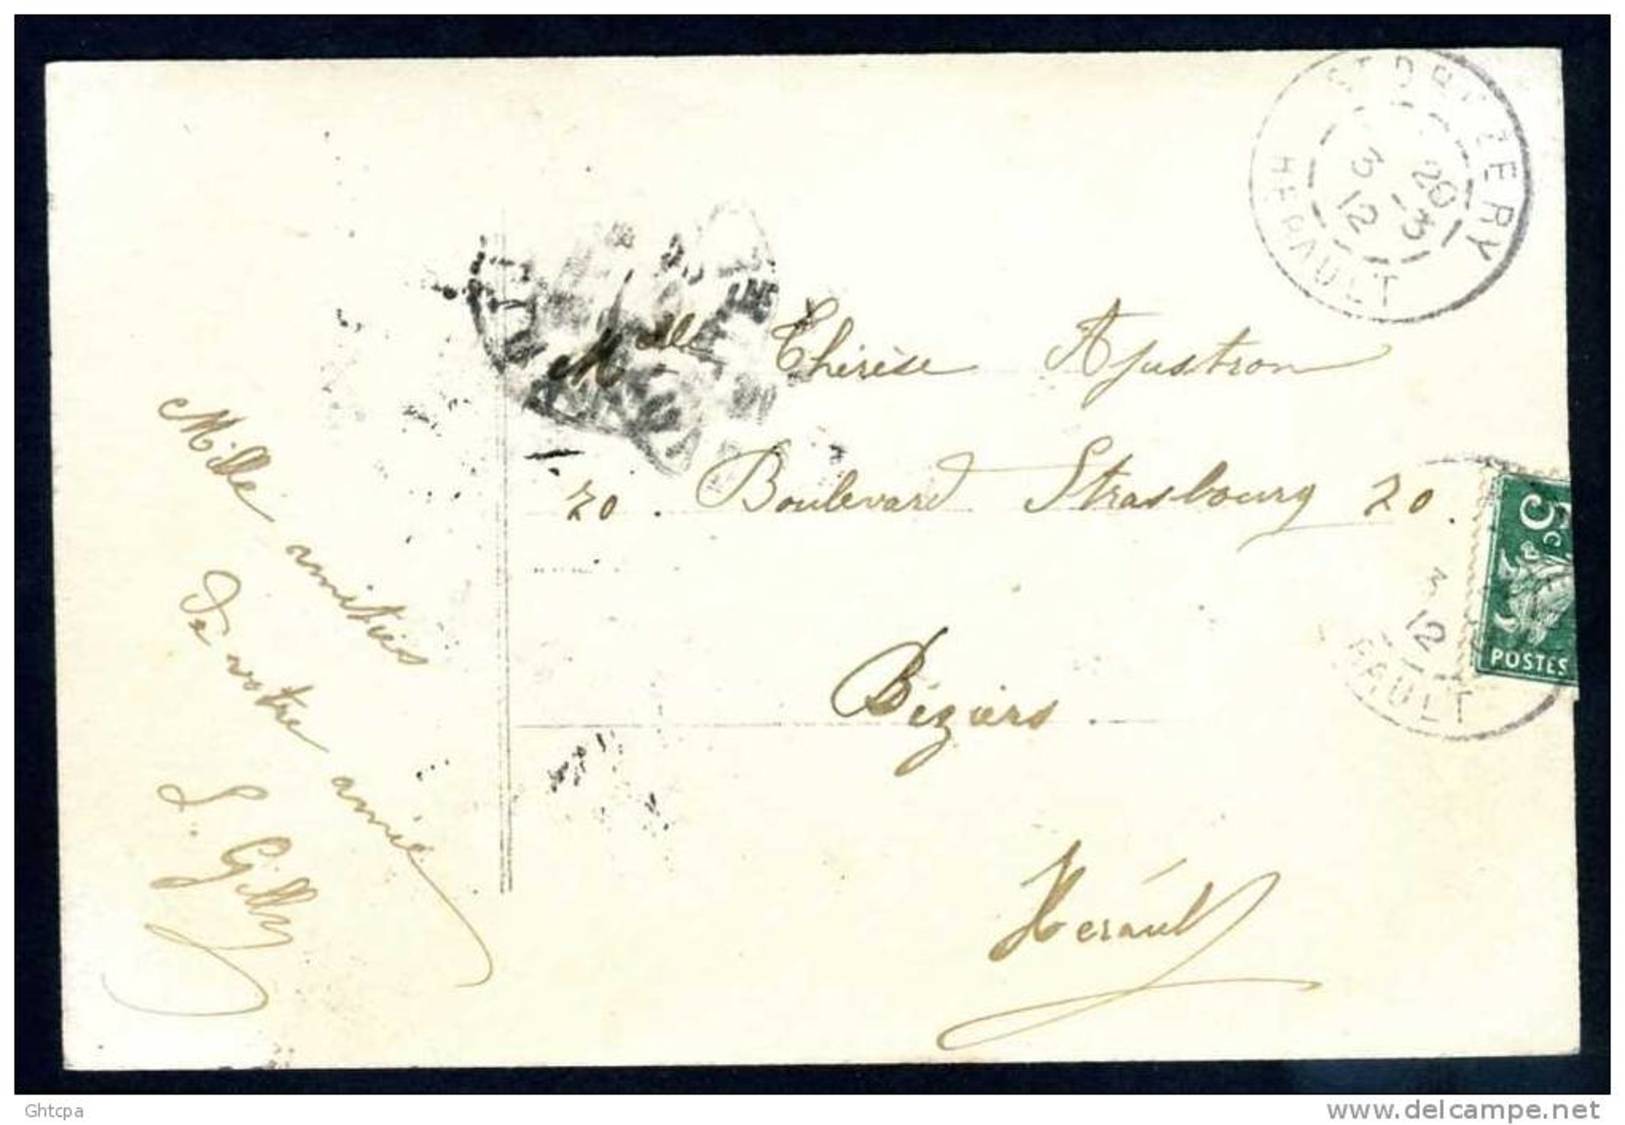 HÉRAULT
20 - 3
3 12
Mlle Thérèse Ajustron
20 . Boulevard Strasbourg 20 .
Béziers .
Hérault
Mille amitiés
de votre amie
L. Gilly
5c
POSTES
3
12
RAULT
Ghtcpa
www.delcampe.net